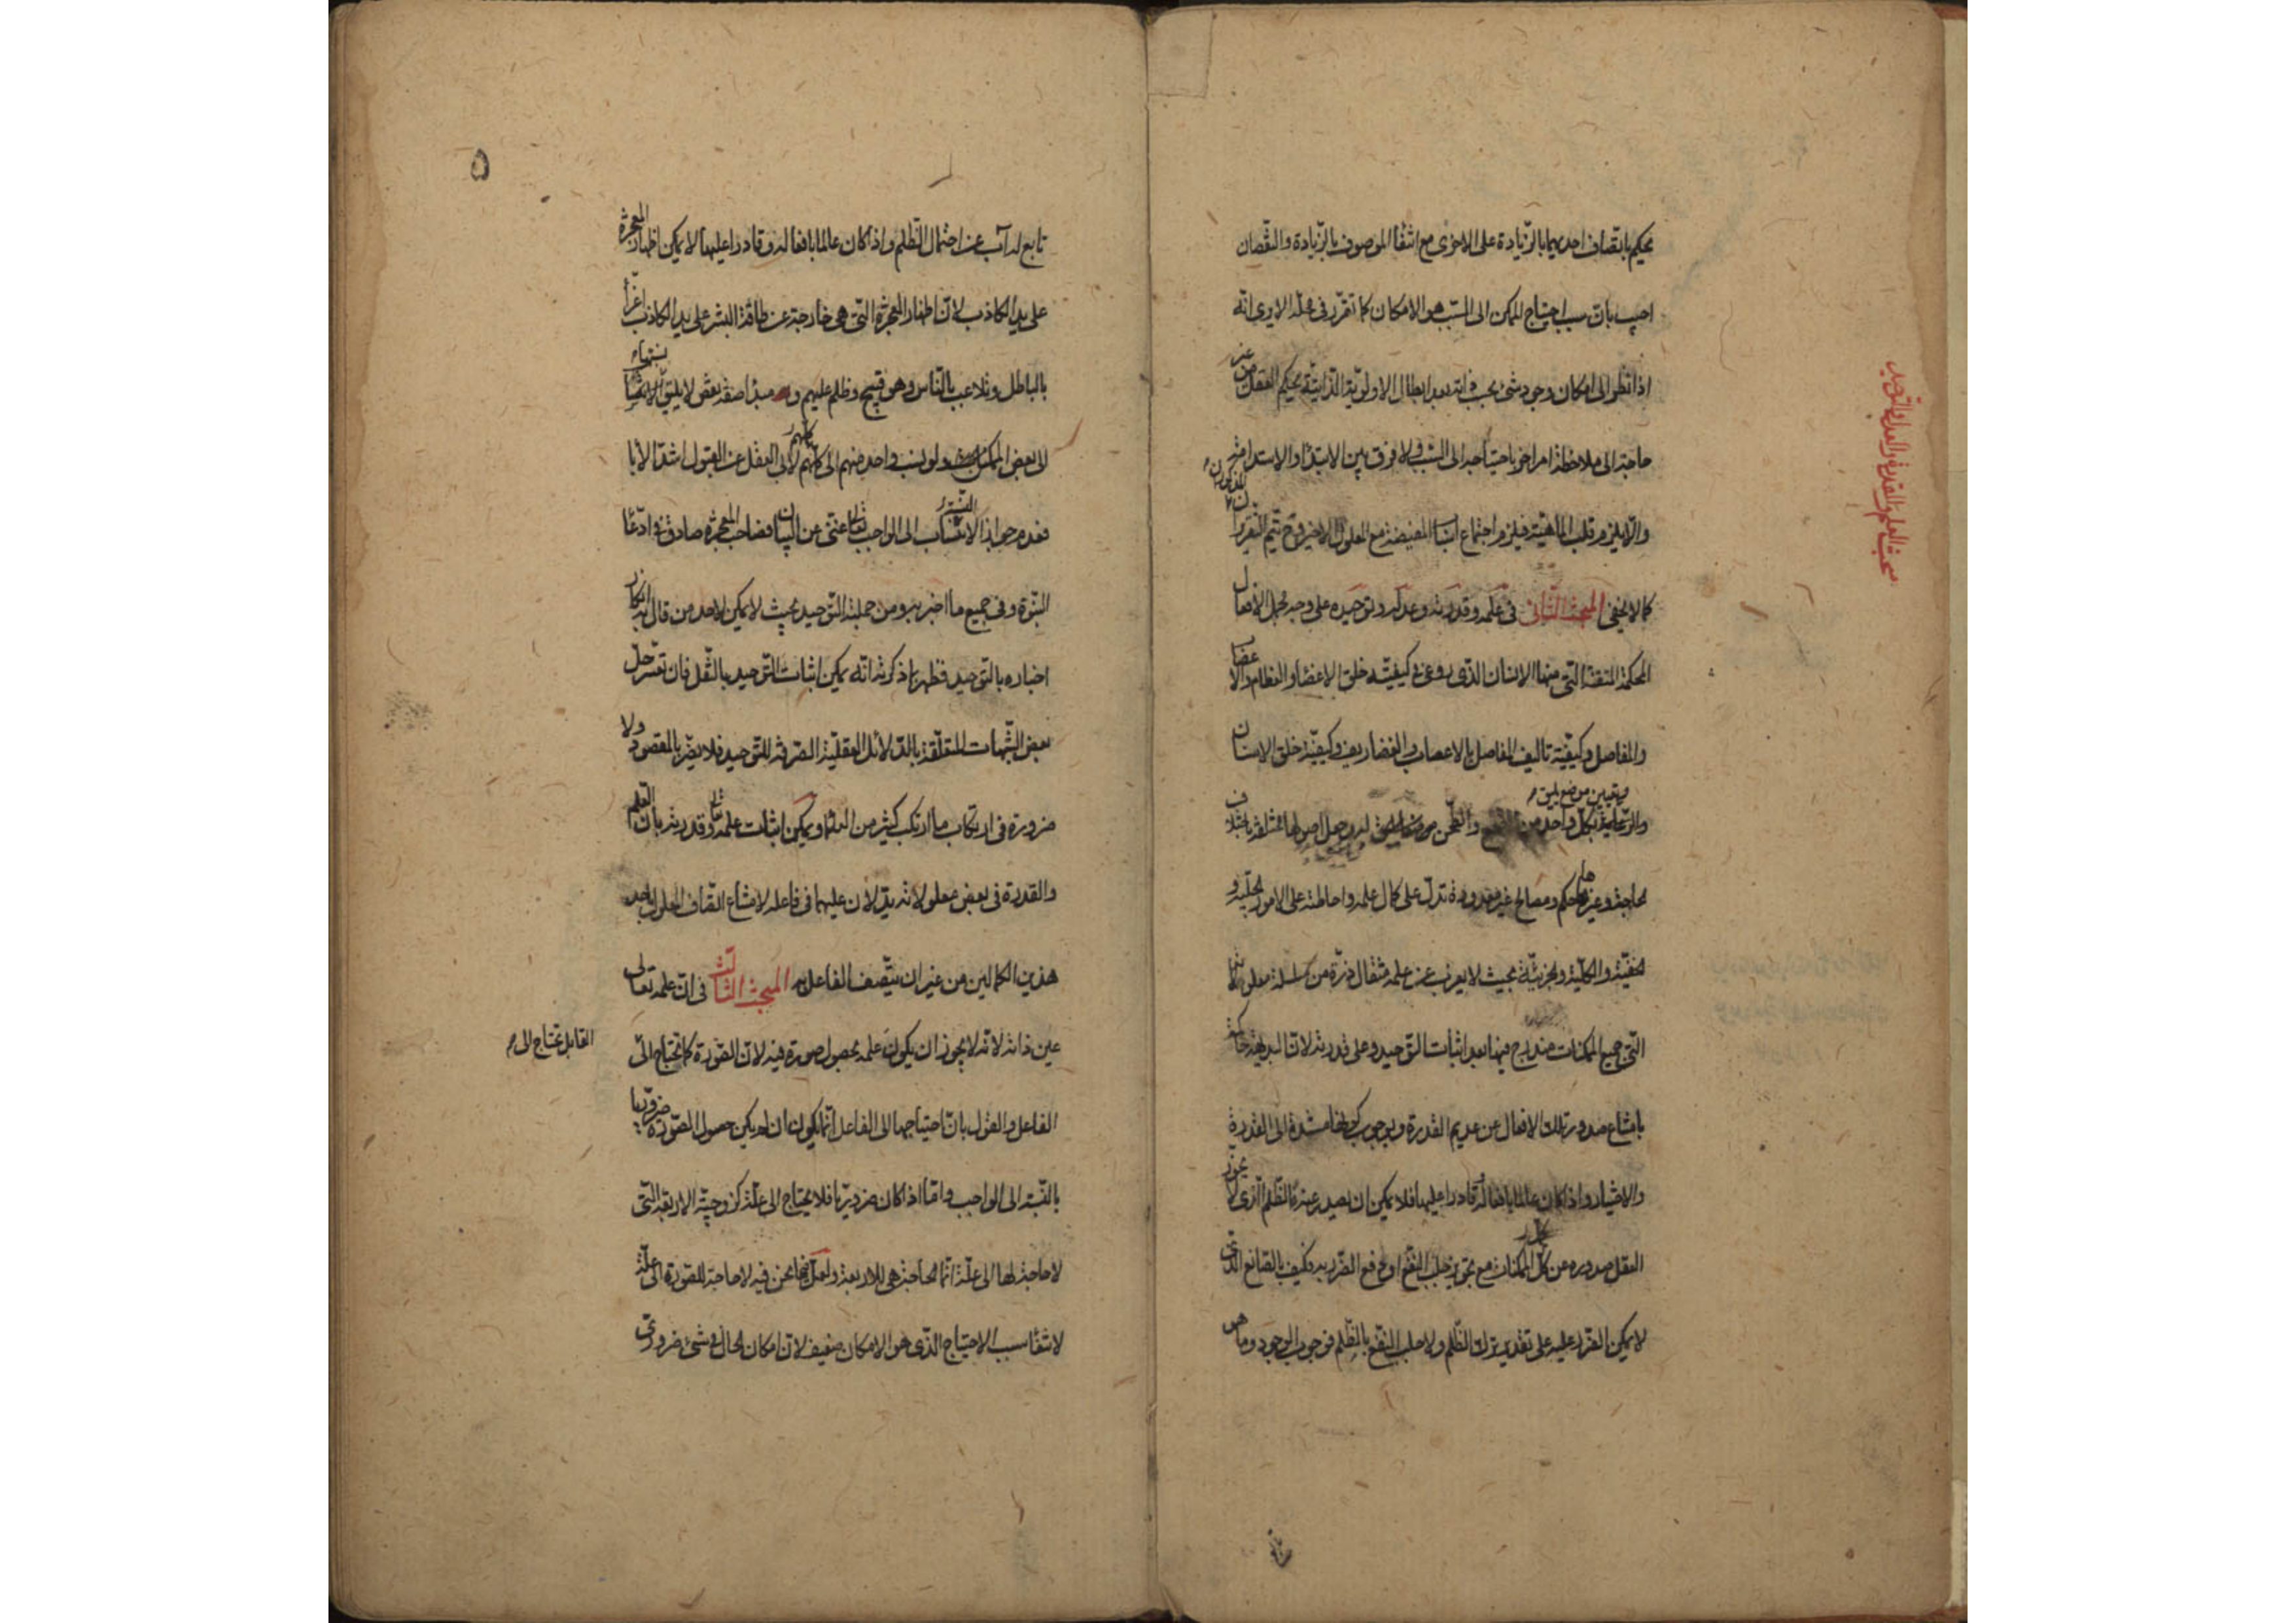 يحكم باتصاف احديهما بالزيادة على الاخرى مع انتفاء الموصوف بالزيادة والنقصان
اجيب بان سبب احتياج الممكن الى السبب هو الامكان كما تقرر فى محله الا يرى انه
اذا نظر الى امكان وجود شئ يجب فانه بعد ابطال الاولوية الذاتية يحكم العقل من غير
حاجة الى ملاحظة امر اخر باحتياجه الى السبب ولا فرق بين الابتداء والاستدامة
والا يلزم قلب الماهية فيلزم اجتماع اسبابها المفيضة مع المعلول الاخير وح يتم التقريران المذكوران
كما لا يخفى المبحث الثانى فى علمه وقدرته وعدله وتوحيده على وجه يجعل الافعال
المحكمة المتقنة التى منها الانسان الذى روعى فى كيفية خلق الاعضاء والعظام والاعضاء
والمفاصل وكيفية تاليف المفاصل بالاعصاب والغضاريف وكيفية خلق الاسنان
والرعاية لكل واحد من القطع والطحن وتعيين موضع يليق له وجعل اصولها مختلفة باختلاف
الحاجة وغيرها حكم ومصالح غير معدودة تدل على كمال علمه واحاطته على الامور الجلية و
الخفية والكلية والجزئية بحيث لا يعزب عن علمه مثقال ذرة من سلسلة معلولاتها
التى جميع الممكنات مندرج فيها بعد اثبات التوحيد وعلى قدرته لان البديهة حاكمة
بامتناع صدور تلك الافعال عن عديم القدرة وبوجوب كونها مستندة الى القدرة
والاختيار واذا كان عالما بافعاله وقادرا عليها فلا يمكن ان يصدر عنه الظلم الذى لا يجوز
العقل صدوره عن كل الممكنات مع تجويز جلب النفع او دفع الضرر به فكيف بالصانع الذى
لا يمكن الضرر عليه على تقدير ترك الظلم ولا جلب النفع بالظلم فوجوب الوجود وما هو
مبحث العلم والقدرة والعدل والتوحيد
٥
تابع له آب عن احتمال الظلم واذا كان عالما بافعاله وقادرا عليها لا يمكن اظهار المعجزة
على يد الكاذب لان اظهار المعجزة التى هى خارجة عن طاقة البشر على يد الكاذب اغراء
بالباطل وتلاعب بالناس وهو قبيح وظلم عليهم و مبدا صفة نقص لا يليق الانتساب بنسبتها
الى بعض الممكن ولو نسب واحد منهم الى كلهم لابى العقل عن القبول اشد الاباء
فعدم جواز الانتساب الى الواجب تعالى غنى عن البيان فصاحب المعجزة صادق فى ادعاء
النبوة وفى جميع ما اخبر به ومن جملته التوحيد بحيث لا يمكن لاحد من قال به انكار
اخباره بالتوحيد فظهر بما ذكرته انه يمكن اثبات التوحيد بالنقل فان تعسر حل
بعض الشبهات المتعلقة بالدلائل العقلية الصرفة للتوحيد فلا يضر بالمقصود ولا
ضرورة فى ارتكاب ما ارتكب كثير من العلماء ويمكن اثبات علمه تعالى وقدرته بان العلم
والقدرة فى بعض معلولاته يدلان عليهما فى فاعله لامتناع اتصاف المعلول باحد
هذين الكمالين من غير ان يتصف الفاعل به المبحث الثالث فى ان علمه تعالى
عين ذاته لانه لا يجوز ان يكون علمه بحصول صورة فيه لان الصورة كما تحتاج الى
القابل تحتاج الى
الفاعل والقول بان احتياجها الى الفاعل انما يكون ان لم يكن حصول الصورة ضروريا
بالنسبة الى الواجب واما اذا كان ضروريا فلا يحتاج الى علة كزوجية الاربعة التى
لا حاجة لها الى علة انما الحاجة هى للاربعة ولعل فيما نحن فيه لا حاجة للصورة الى علة
لانتفاء سبب الاحتياج الذى هو الامكان ضعيف لان امكان الحال فى شئ ضرورى